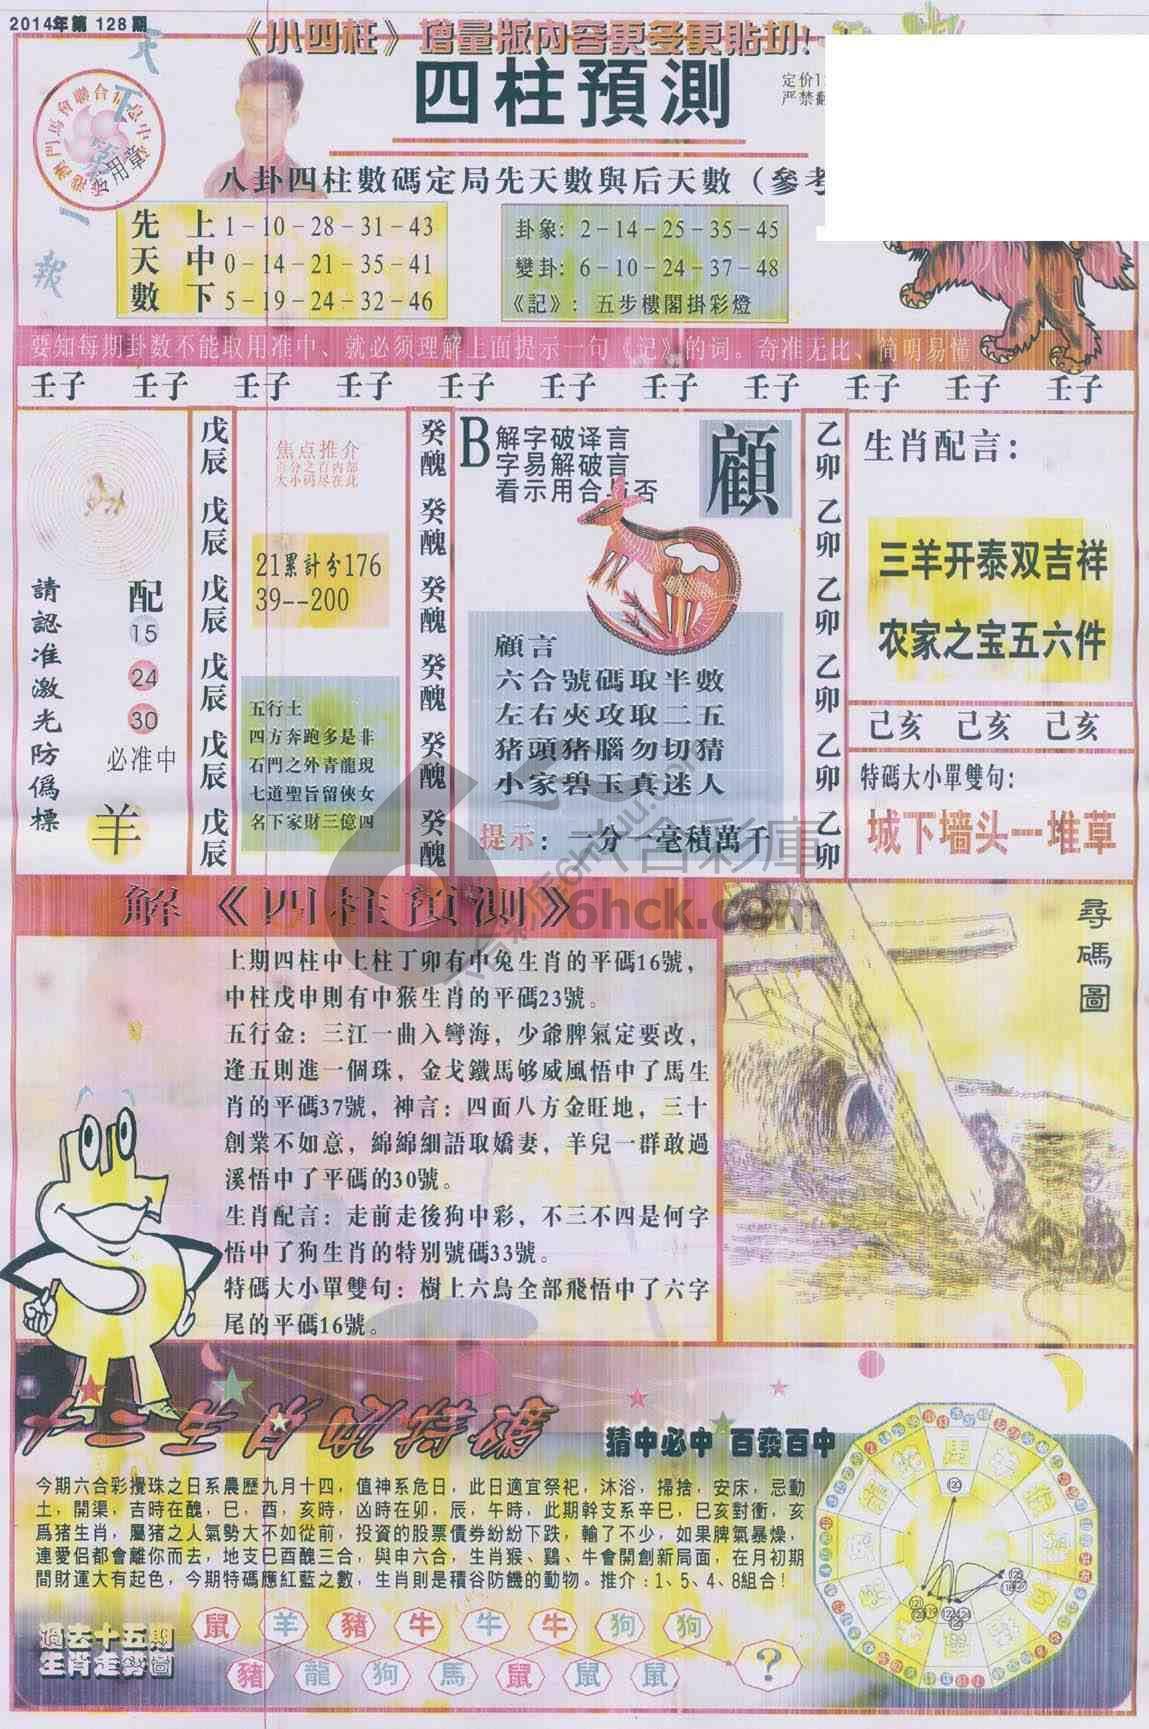 2014年第 128 期
《小四柱》增量版內容更多更貼切!
四柱預測
定价1
严禁翻
八卦四柱數碼定局先天數與后天數（參考
天下第一報
先天數
上 1－10－28－31－43
中 0－14－21－35－41
下 5－19－24－32－46
卦象: 2－14－25－35－45
變卦: 6－10－24－37－48
《記》: 五步樓閣掛彩燈
要知每期卦数不能取用准中、就必须理解上面提示一句《记》的词。奇准无比、简明易懂
壬子 壬子 壬子 壬子 壬子 壬子 壬子 壬子 壬子 壬子 壬子
請認准激光防僞標
配
15
24
30
必准中
羊
戊辰 戊辰 戊辰 戊辰 戊辰 戊辰
焦点推介
百分之百内部
大小码尽在此
21累計分176
39--200
五行土
四方奔跑多是非
石門之外青龍現
七道聖旨留俠女
名下家財三億四
癸醜 癸醜 癸醜 癸醜 癸醜 癸醜
B
解字破译言
字易解破言
看示用合与否
顧
顧言
六合號碼取半數
左右夾攻取二五
猪頭猪腦勿切猜
小家碧玉真迷人
提示: 一分一毫積萬千
乙卯 乙卯 乙卯 乙卯 乙卯 乙卯
生肖配言:
三羊开泰双吉祥
农家之宝五六件
己亥 己亥 己亥
特碼大小單雙句:
城下墙头一堆草
解《四柱預測》
上期四柱中上柱丁卯有中兔生肖的平碼16號,
中柱戊申則有中猴生肖的平碼23號。
五行金: 三江一曲入彎海, 少爺脾氣定要改,
逢五則進一個珠, 金戈鐵馬够威風悟中了馬生
肖的平碼37號, 神言: 四面八方金旺地, 三十
創業不如意, 綿綿細語取嬌妻, 羊兒一群敢過
溪悟中了平碼的30號。
生肖配言: 走前走後狗中彩, 不三不四是何字
悟中了狗生肖的特别號碼33號。
特碼大小單雙句: 樹上六鳥全部飛悟中了六字
尾的平碼16號。
尋碼圖
六合彩庫
6hck.com
猜中必中 百發百中
今期六合彩攪珠之日系農歷九月十四, 值神系危日, 此日適宜祭祀, 沐浴, 掃捨, 安床, 忌動
土, 開渠, 吉時在醜, 巳, 酉, 亥時, 凶時在卯, 辰, 午時, 此期幹支系辛巳, 巳亥對衝, 亥
爲猪生肖, 屬猪之人氣勢大不如從前, 投資的股票債券紛紛下跌, 輸了不少, 如果脾氣暴燥,
連愛侶都會離你而去, 地支巳酉醜三合, 與申六合, 生肖猴、鷄、牛會開創新局面, 在月初期
間財運大有起色, 今期特碼應紅藍之數, 生肖則是積谷防饑的動物。推介: 1、5、4、8組合!
過去十五期
生肖走勢圖
鼠 羊 豬 牛 牛 牛 狗 狗
豬 龍 狗 馬 鼠 鼠 鼠 ?